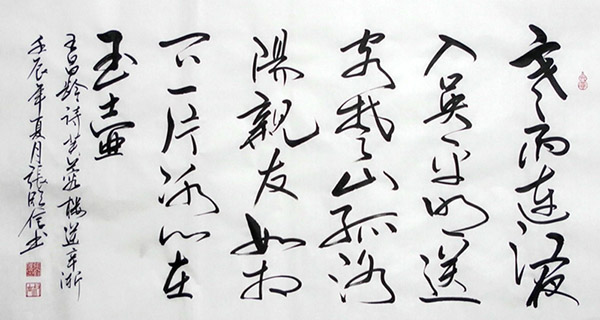 寒雨連江夜
入吴平明送
客楚山孤洛
陽親友如相
问一片冰心在
玉壺
王昌齡詩芙蓉楼送辛渐
壬辰年夏月張信书